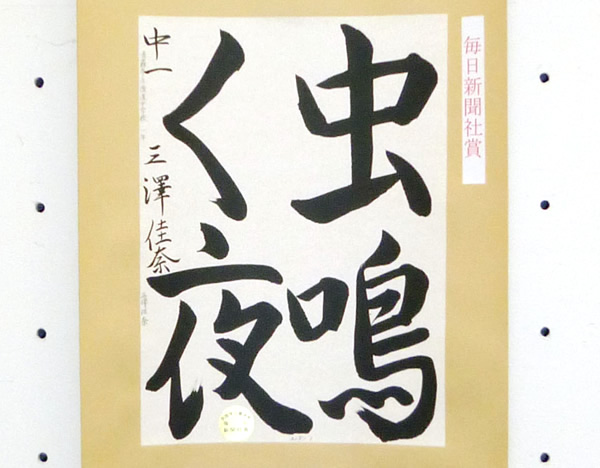 毎日新聞社賞
虫鳴
く夜
中一 三澤佳奈